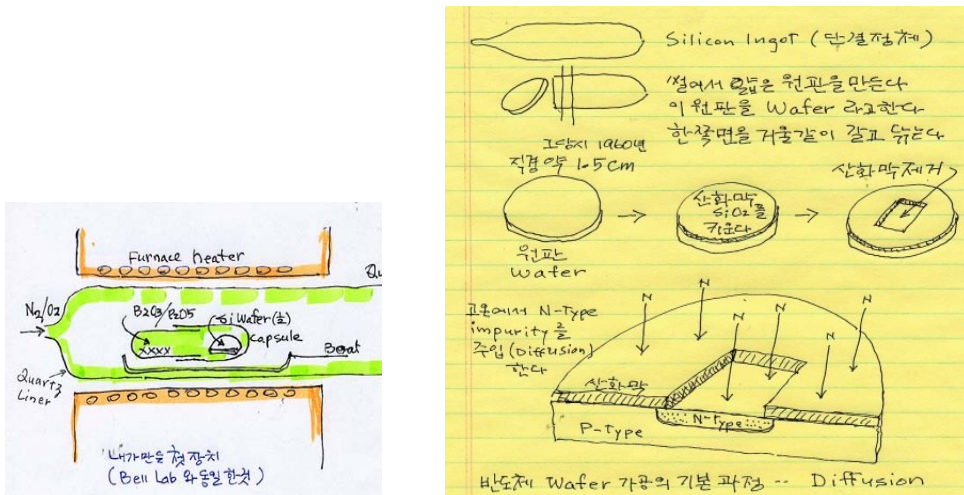 Furnace heater
Qu
N2/O2
B2O3/P2O5
Si Wafer(소)
capsule
xxxx
Boat
Quartz
Liner
내가 만든 첫 장치
(Bell Lab 와 동일한것)
Silicon Ingot (단결정체)
썰어서 얇은 원판을 만든다
이 원판을 Wafer 라고한다
한쪽면을 거울같이 갈고 닦는다
그당시 1960년
직경 약 1.5cm
산화막제거
산화막
SiO2를
키운다
원판
Wafer
고온에서 N-Type
impurity를
주입(Diffusion)
한다
N
N
N
N
N
산화막
N-Type
P-Type
반도체 Wafer 가공의 기본 과정 -- Diffusion